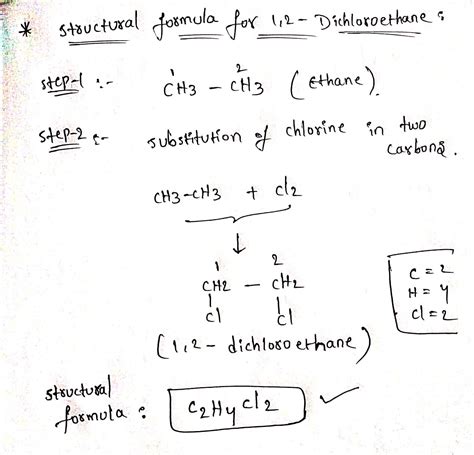 * structural formula for 1,2-Dichloroethane :
step-1 :- 1 2
CH3 - CH3 (Ethane).
step-2 :- substitution of chlorine in two
carbons.
CH3-CH3 + Cl2
↓
1 2
CH2 - CH2
| |
Cl Cl
C = 2
H = 4
Cl = 2
(1,2-dichloroethane)
structural
formula : C2H4Cl2 ✓